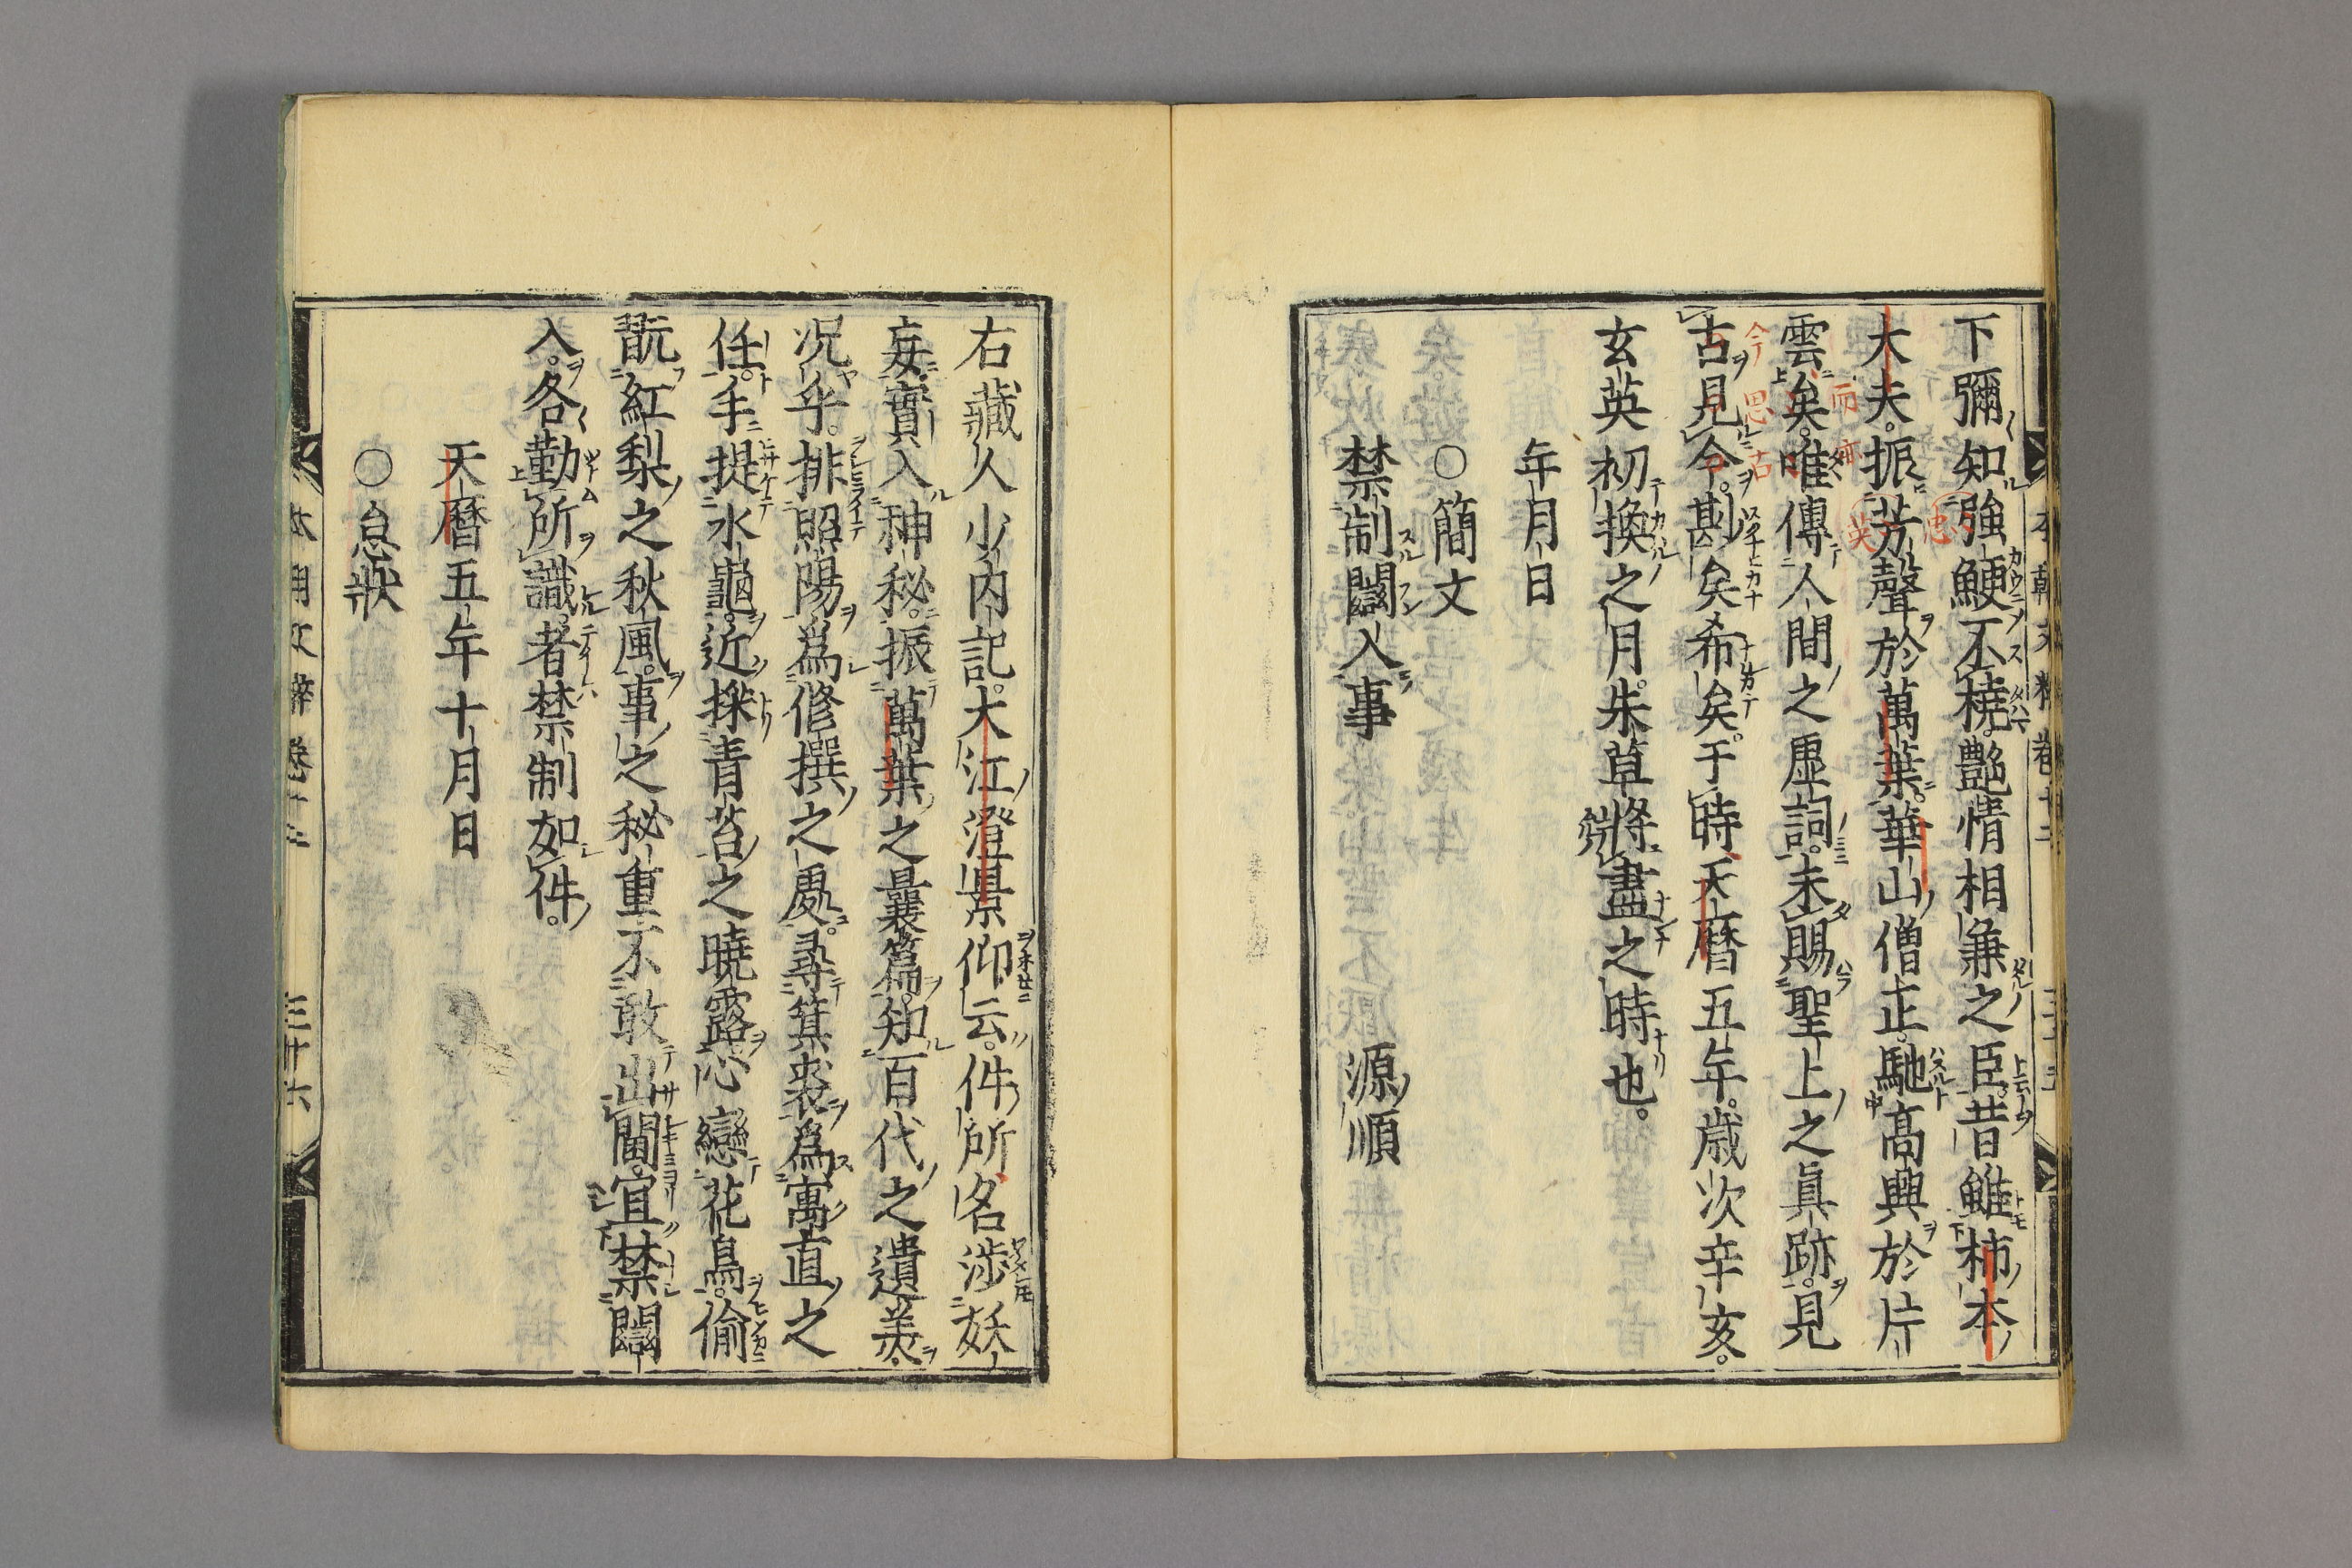 下彌知強鯁不橈艷情相兼之臣昔雖柿本
大夫。振芳聲於萬葉。華山僧正。馳高興於片
雲矣。唯傳人間之虚詞。未賜聖上之眞跡。見
古見今。尠矣希矣。于時天暦五年。歳次辛亥。
玄英初換之月。朱草將盡之時也。
年月日
○簡文
禁制闌入事 源順
右藏人少内記大江澄景仰云。件所名渉妖
妄。實入神秘。振萬葉之曩篇。知百代之遺美。
况乎。排照陽爲修撰之處。尋箕裘爲寓直之
任。手提水龜。近採青苔之曉露。心戀花鳥。偷
翫紅梨之秋風。事之秘重不敢出閫。宜禁闌
入。各勤所識者。禁制如件。
天暦五年十月日
○怠狀
三十六